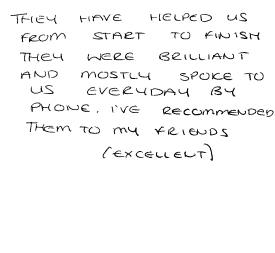 THEY HAVE HELPED US
FROM START TO FINISH
THEY WERE BRILLIANT
AND MOSTLY SPOKE TO
US EVERYDAY BY
PHONE. I'VE RECOMMENDED
THEM TO MY FRIENDS
(EXCELLENT)